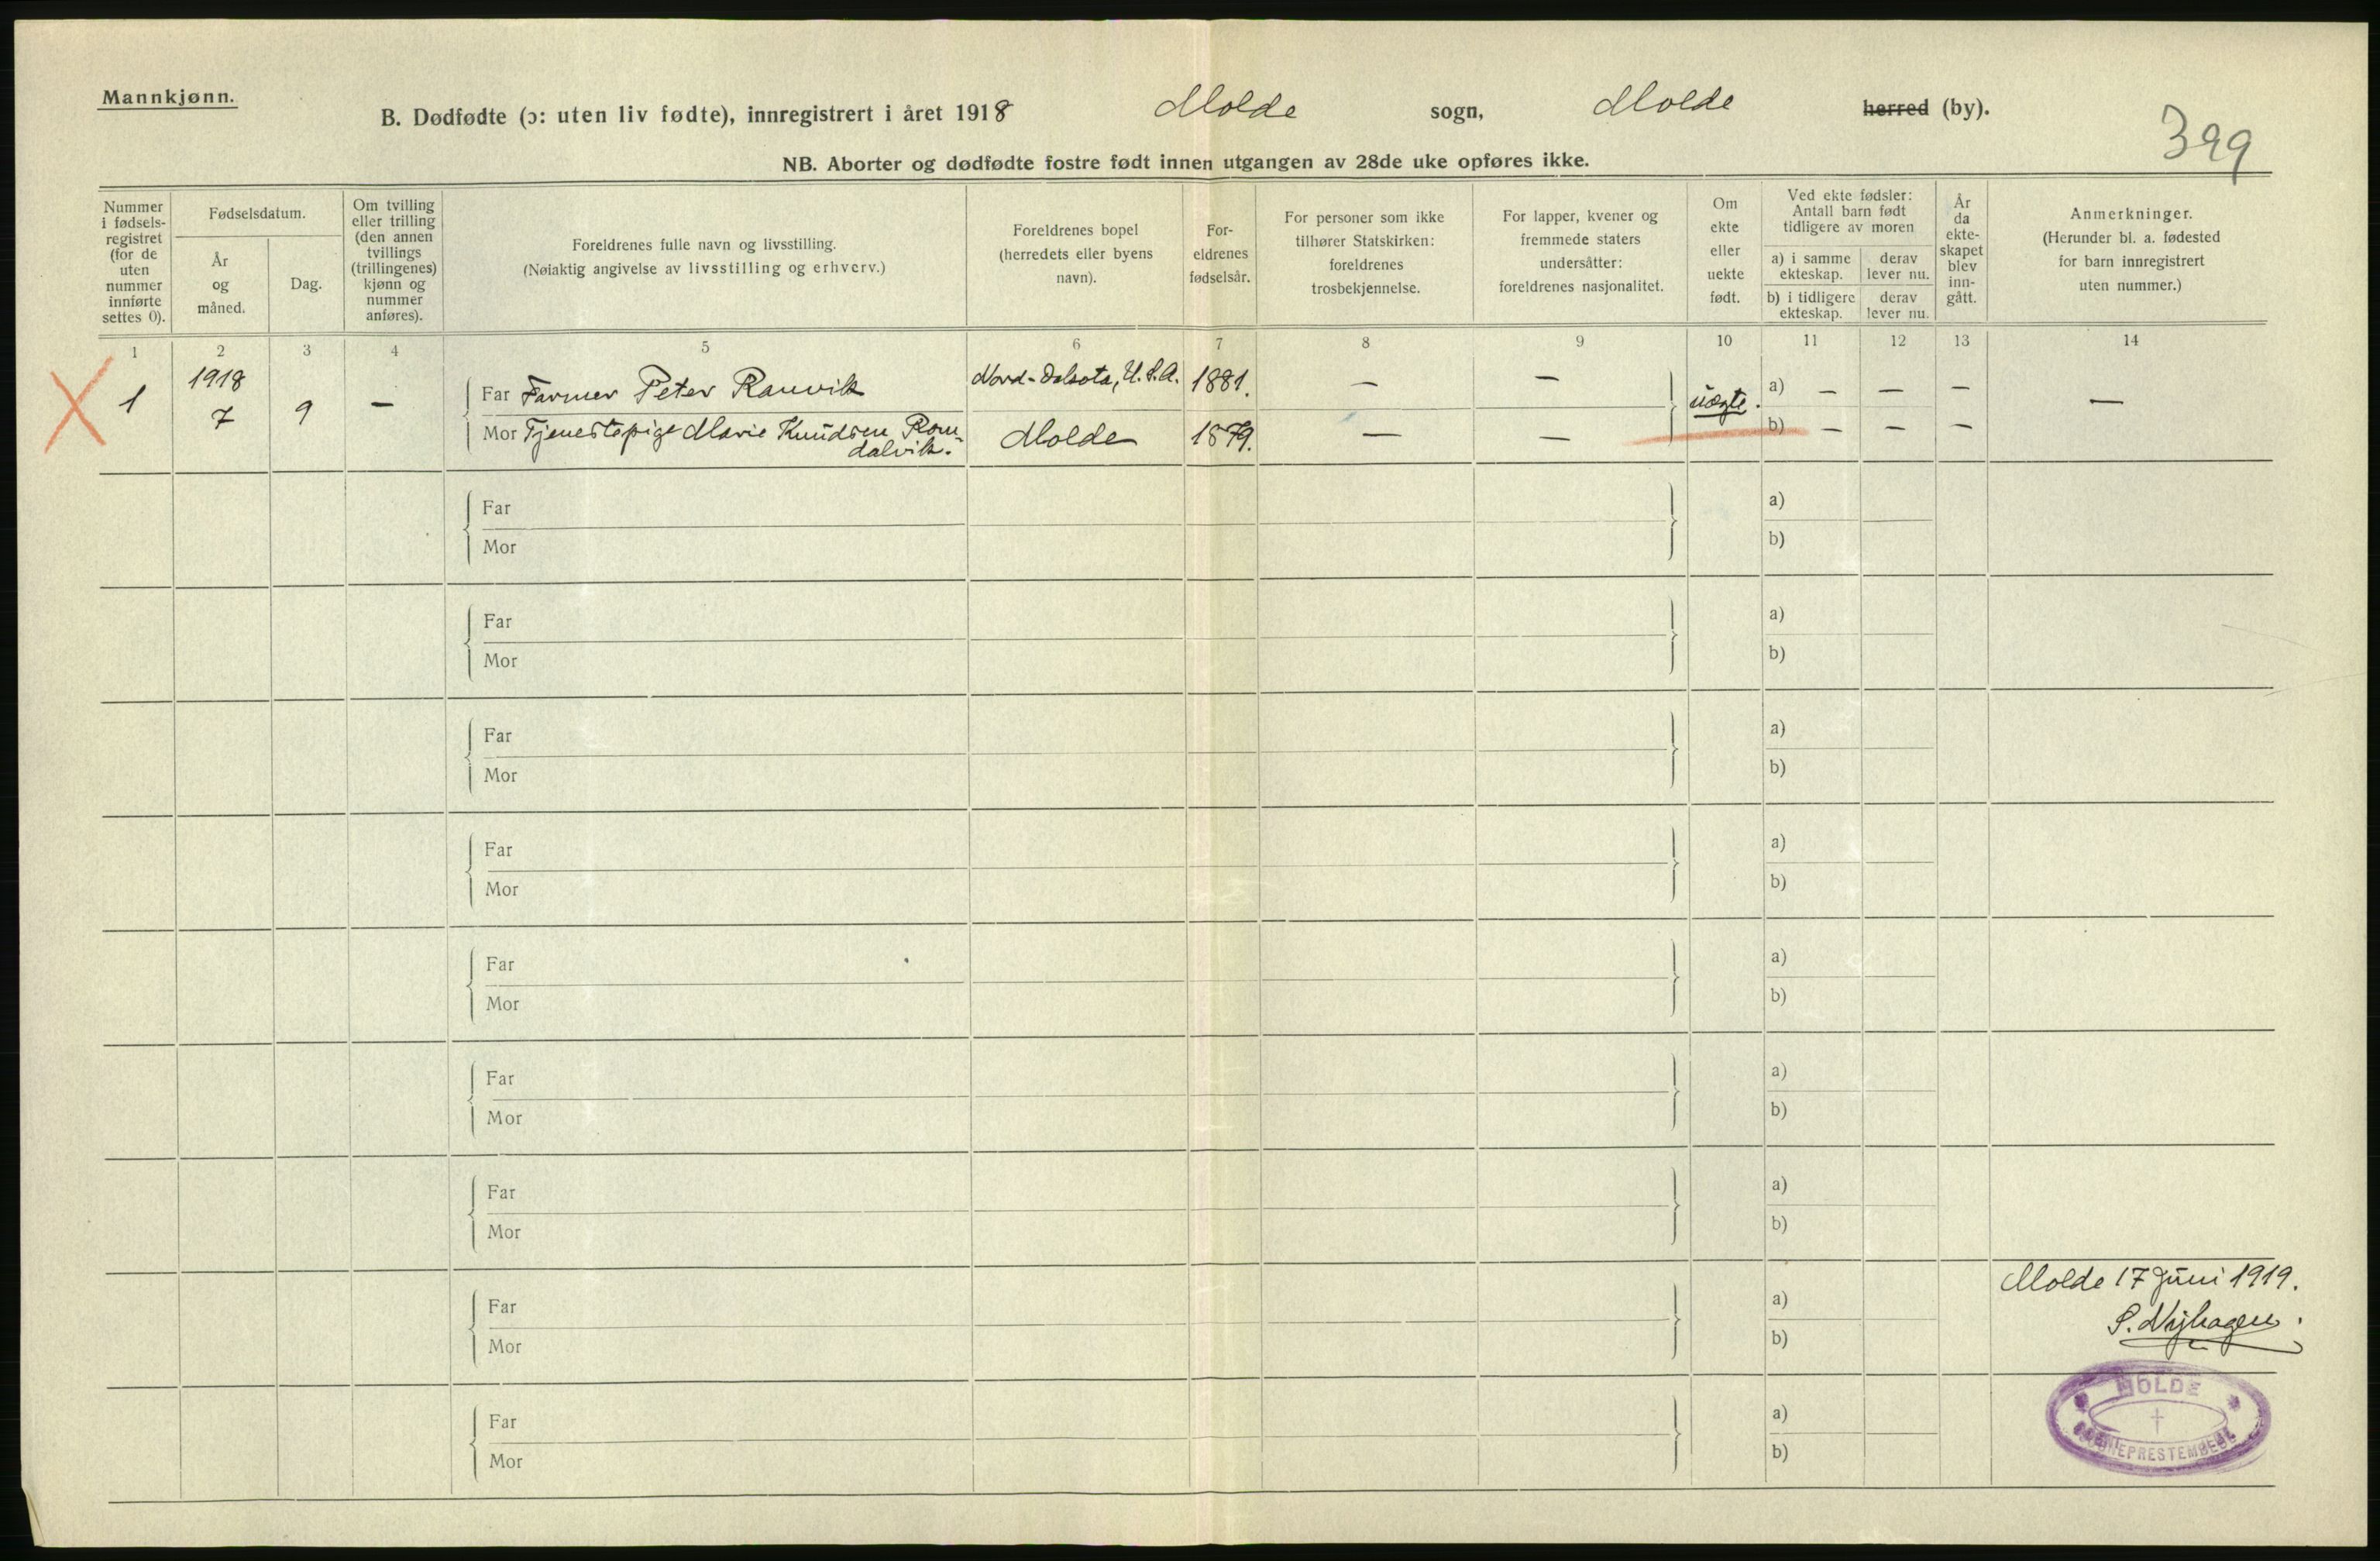 Mannkjønn.
B. Dødfødte (ɔ: uten liv fødte), innregistrert i året 1918 Molde sogn, Molde herred (by).
399
NB. Aborter og dødfødte fostre født innen utgangen av 28de uke opføres ikke.
Nummer i fødsels-registret (for de uten nummer innførte settes 0).
Fødselsdatum.
År og måned.
Dag.
Om tvilling eller trilling (den annen tvillings (trillingenes) kjønn og nummer anføres).
Foreldrenes fulle navn og livsstilling.
(Nøiaktig angivelse av livsstilling og erhverv.)
Foreldrenes bopel (herredets eller byens navn).
For-eldrenes fødselsår.
For personer som ikke tilhører Statskirken: foreldrenes trosbekjennelse.
For lapper, kvener og fremmede staters undersåtter: foreldrenes nasjonalitet.
Om ekte eller uekte født.
Ved ekte fødsler: Antall barn født tidligere av moren
a) i samme ekteskap.
derav lever nu.
b) i tidligere ekteskap.
derav lever nu.
År da ekte-skapet blev inn-gått.
Anmerkninger.
(Herunder bl. a. fødested for barn innregistrert uten nummer.)
1 2 3 4 5 6 7 8 9 10 11 12 13 14
1 1918 7 9 –
Far Farmer Peter Ranvik Nord-Dakota, U.S.A. 1881. – – uægte. a) – – – –
Mor Tjenestepige Marie Knudsen Rom-
dalvik. Molde 1879. – – b) – – –
Far a)
Mor b)
Far a)
Mor b)
Far a)
Mor b)
Far a)
Mor b)
Far a)
Mor b)
Far a)
Mor b)
Far a)
Mor b)
Molde 17 Juni 1919.
Far a)
S. Nyhagen.
Mor b)
MOLDE
Far a)
Mor b)